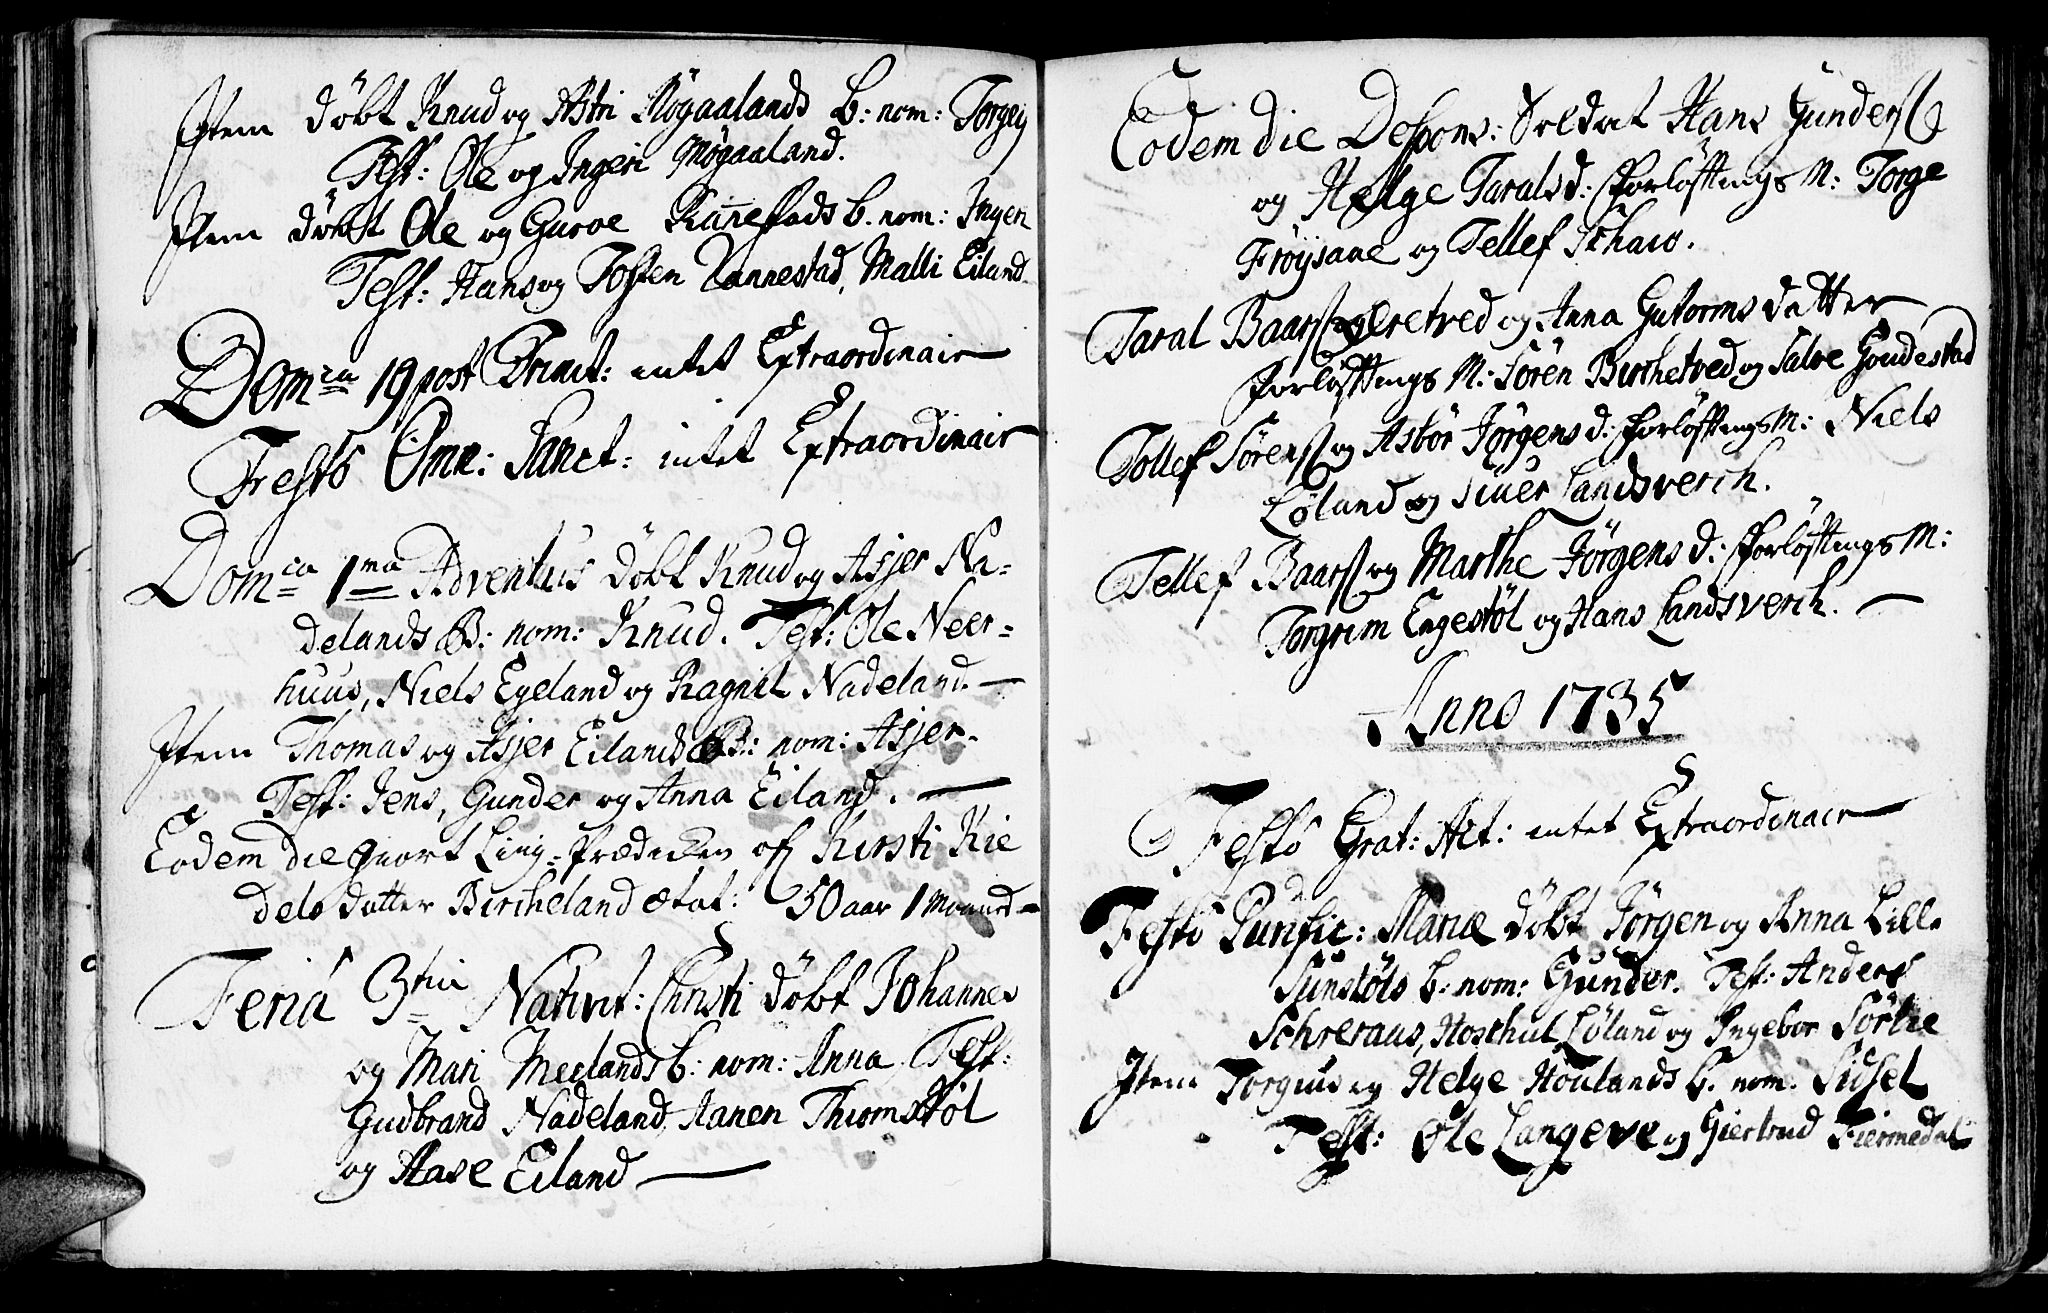 Item döbt Knud og Astri Møgaalands B: nom: Torgey
Test: Ole og Ingeri Møgaaland.
Item döbt Ole og Guroe Rañestads b. nom: Ingeri
Test: Hans og Tosten Rannestad, Malli Eiland.
Domca 19 post Trinit: intet Extraordinair
Festo Omn: Sanct: intet Extraordinair
Domca 1ma Adventus döbt Knud og Asjer Na=
delands B: nom: Knud. Test: Ole Neer=
huus, Niels Egeland og Ragnil Nadeland.
Item Thomas og Asjer Eilands B: nom: Asjer.
Test: Jens, Gunder og Anna Eiland.
Eodem die giort Liig=Prædicken af Kirsti Kie
dels datter Bircheland ætat: 50 aar 1 Maaned
Feria 3tia Nativit: Christi döbt Johannes
og Mari Meelands b: nom: Anna Test:
Gudbrand Nadeland, Hanen Thiomstøl
og Aase Eiland
Eodem die Despons: Soldat Hans Gunders
og Helge Taralsd: Forløftnings M: Torge
Frøysane og Tellef Schaio.
Taral Baars og Anna Gutorms datter
Forløftnings M: Sören Birchetved og Salve Goudestad
Tollef Sörens og Asbör Jörgensd: Forløftnings M: Niels
Løland og Siuer Landsverch.
Tellef Baars og Marthe Jörgensd: Forløftnings M:
Torgrim Engestøl og Hans Landsverch.
Anno 1735
Festo Grat: Act: intet Extraordinair
Festo Purific: Mariæ döbt Jörgen og Anna Lill=
Sunstöls b: nom: Gunder. Test: Anders
Schreraas, Løland og Ingebor Sörlie
Item og Helge Houlands b. nom: Sidsel
Test: Ole Langeve og Giertrud Fiermedal